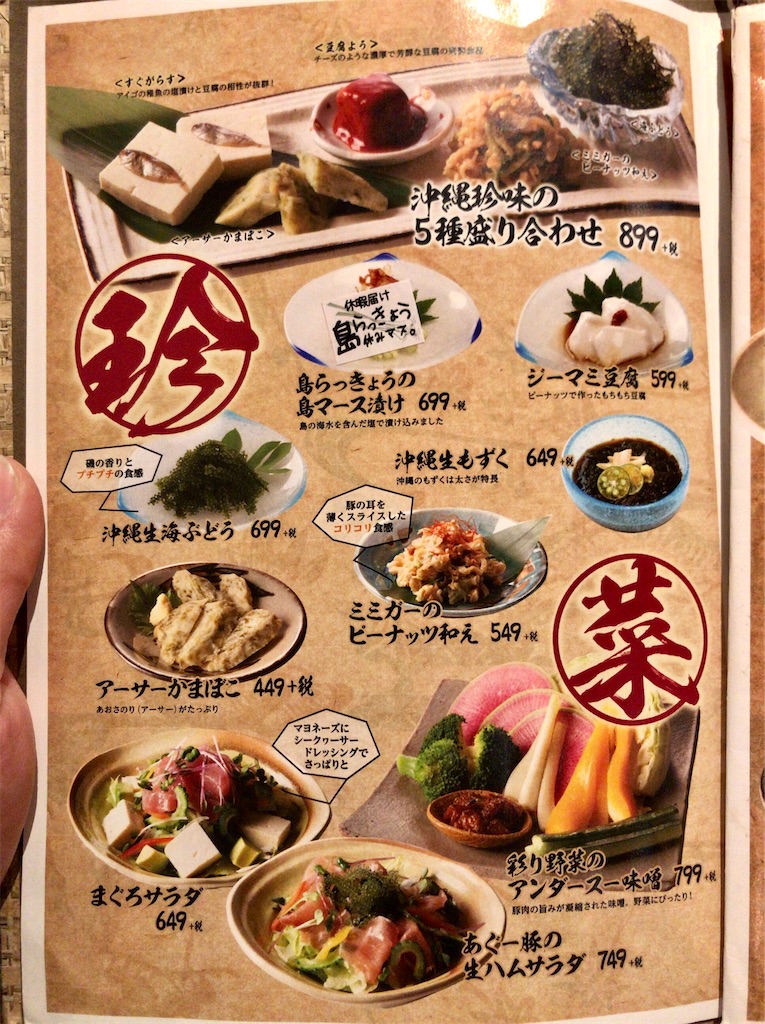 <豆腐よう>
チーズのような濃厚で芳醇な豆腐の発酵食品
<すくがらす>
アイゴの稚魚の塩漬けと豆腐の相性が抜群!
<海ぶどう>
<ミミガーの
ピーナッツ和え>
<アーサーかまぼこ>
沖縄珍味の
5種盛り合わせ 899+税
珍
休暇届け
島らっきょう
休みます。
島らっきょうの
島マース漬け 699+税
島の海水を含んだ塩で漬け込みました
ジーマミ豆腐 599+税
ピーナッツで作ったもちもち豆腐
磯の香りと
プチプチの食感
沖縄生海ぶどう 699+税
沖縄生もずく 649+税
沖縄のもずくは太さが特長
豚の耳を
薄くスライスした
コリコリ食感
ミミガーの
ピーナッツ和え 549+税
菜
アーサーかまぼこ 449+税
あおさのり(アーサー)がたっぷり
マヨネーズに
シークヮーサー
ドレッシングで
さっぱりと
まぐろサラダ
649+税
彩り野菜の
アンダースー味噌 799+税
豚肉の旨みが凝縮された味噌。野菜にぴったり!
あぐー豚の
生ハムサラダ 749+税